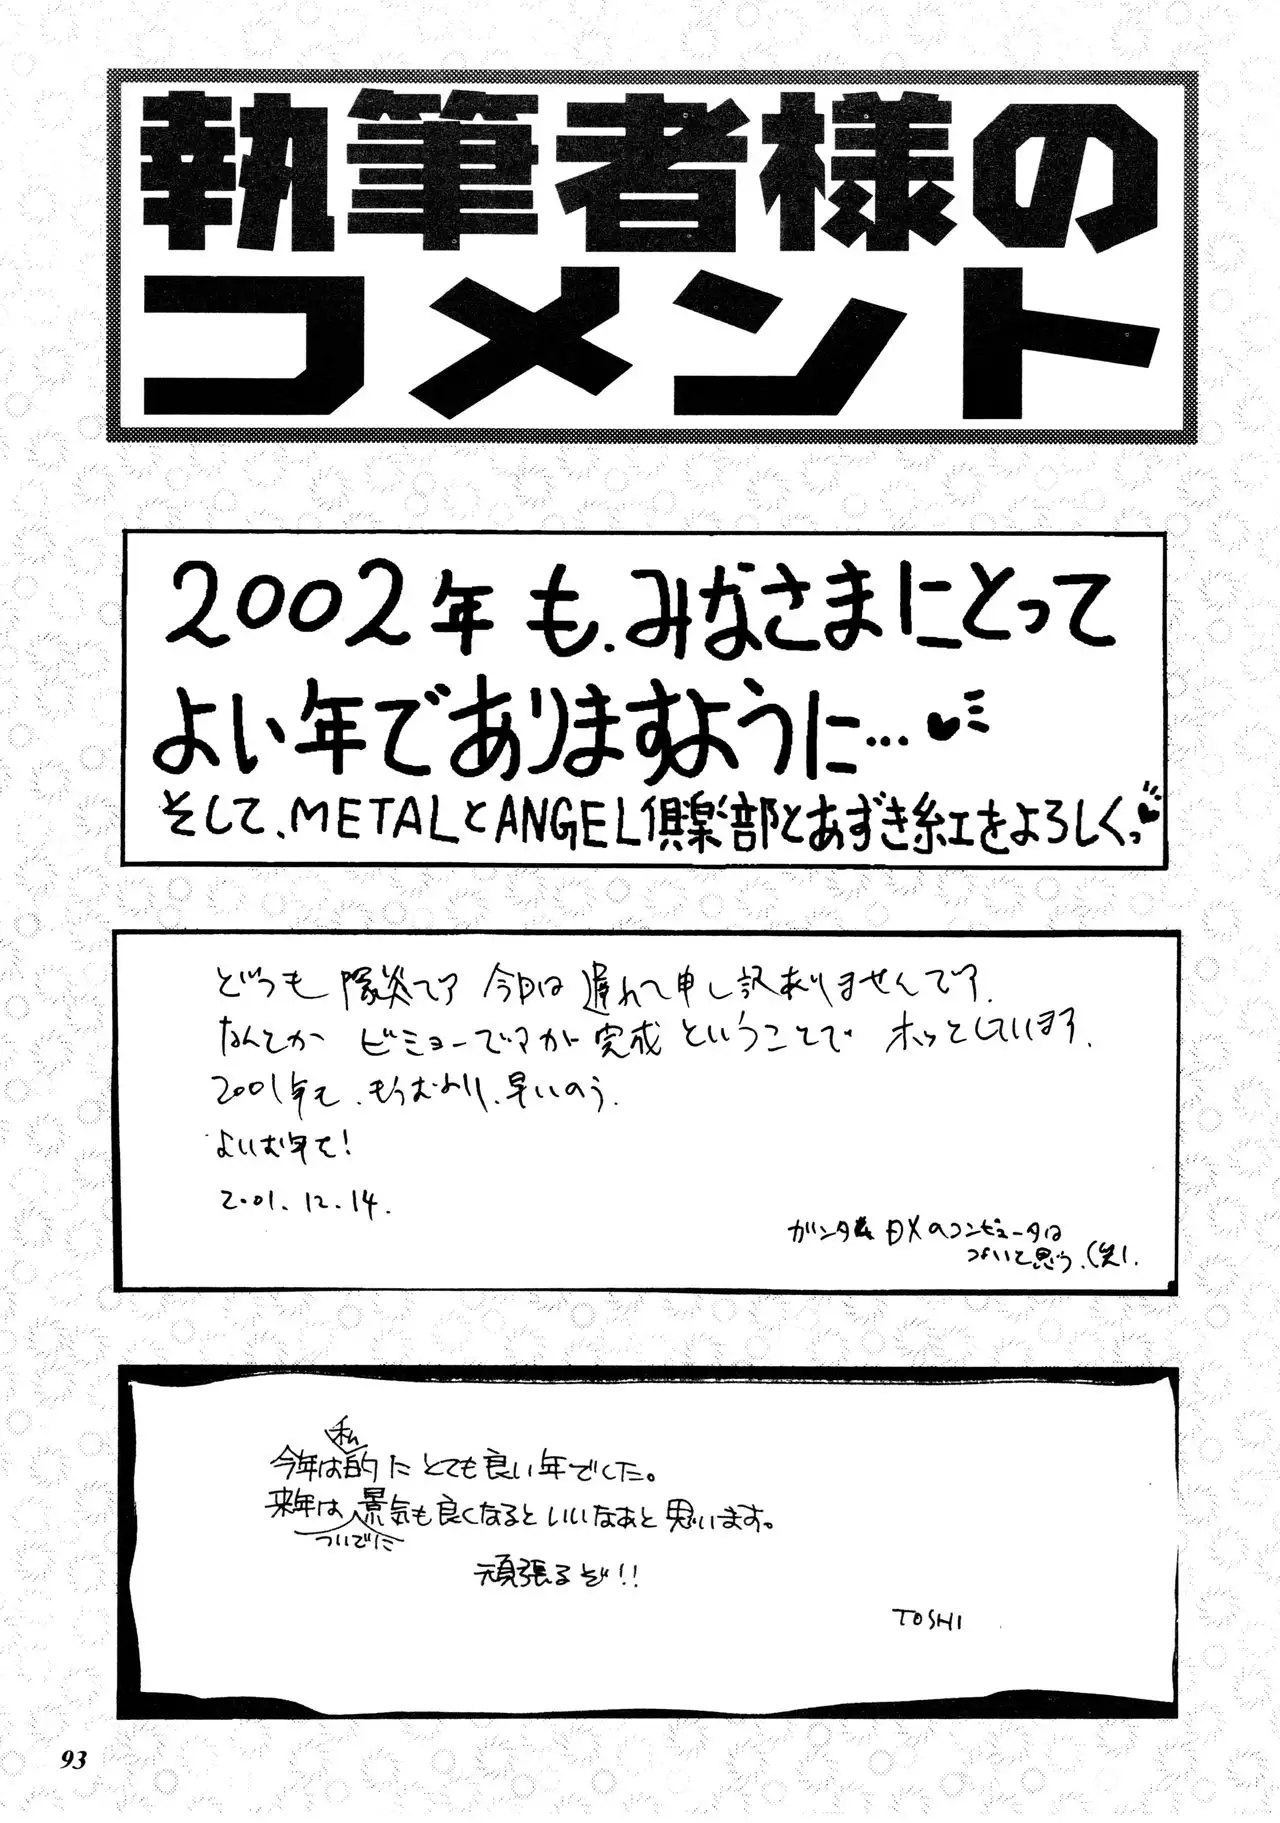 執筆者様の
コメント
2002年も、みなさまにとって
よい年でありますように…
そして、METALとANGEL倶楽部とあずき紅をよろしくっ
どうも 陽炎です 今回は遅れて申し訳ありませんです.
なんとか ビミョーですが 完成 ということで ホッとしています.
2001年も、もうおわり、早いのう.
よいお年を!
2001.12.14.
DXのコンピュータは
つよいと思う.(笑).
今年は私的にとても良い年でした。
来年はついでに景気も良くなるといいなあと思います。
頑張るぞ!!
TOSHI
93